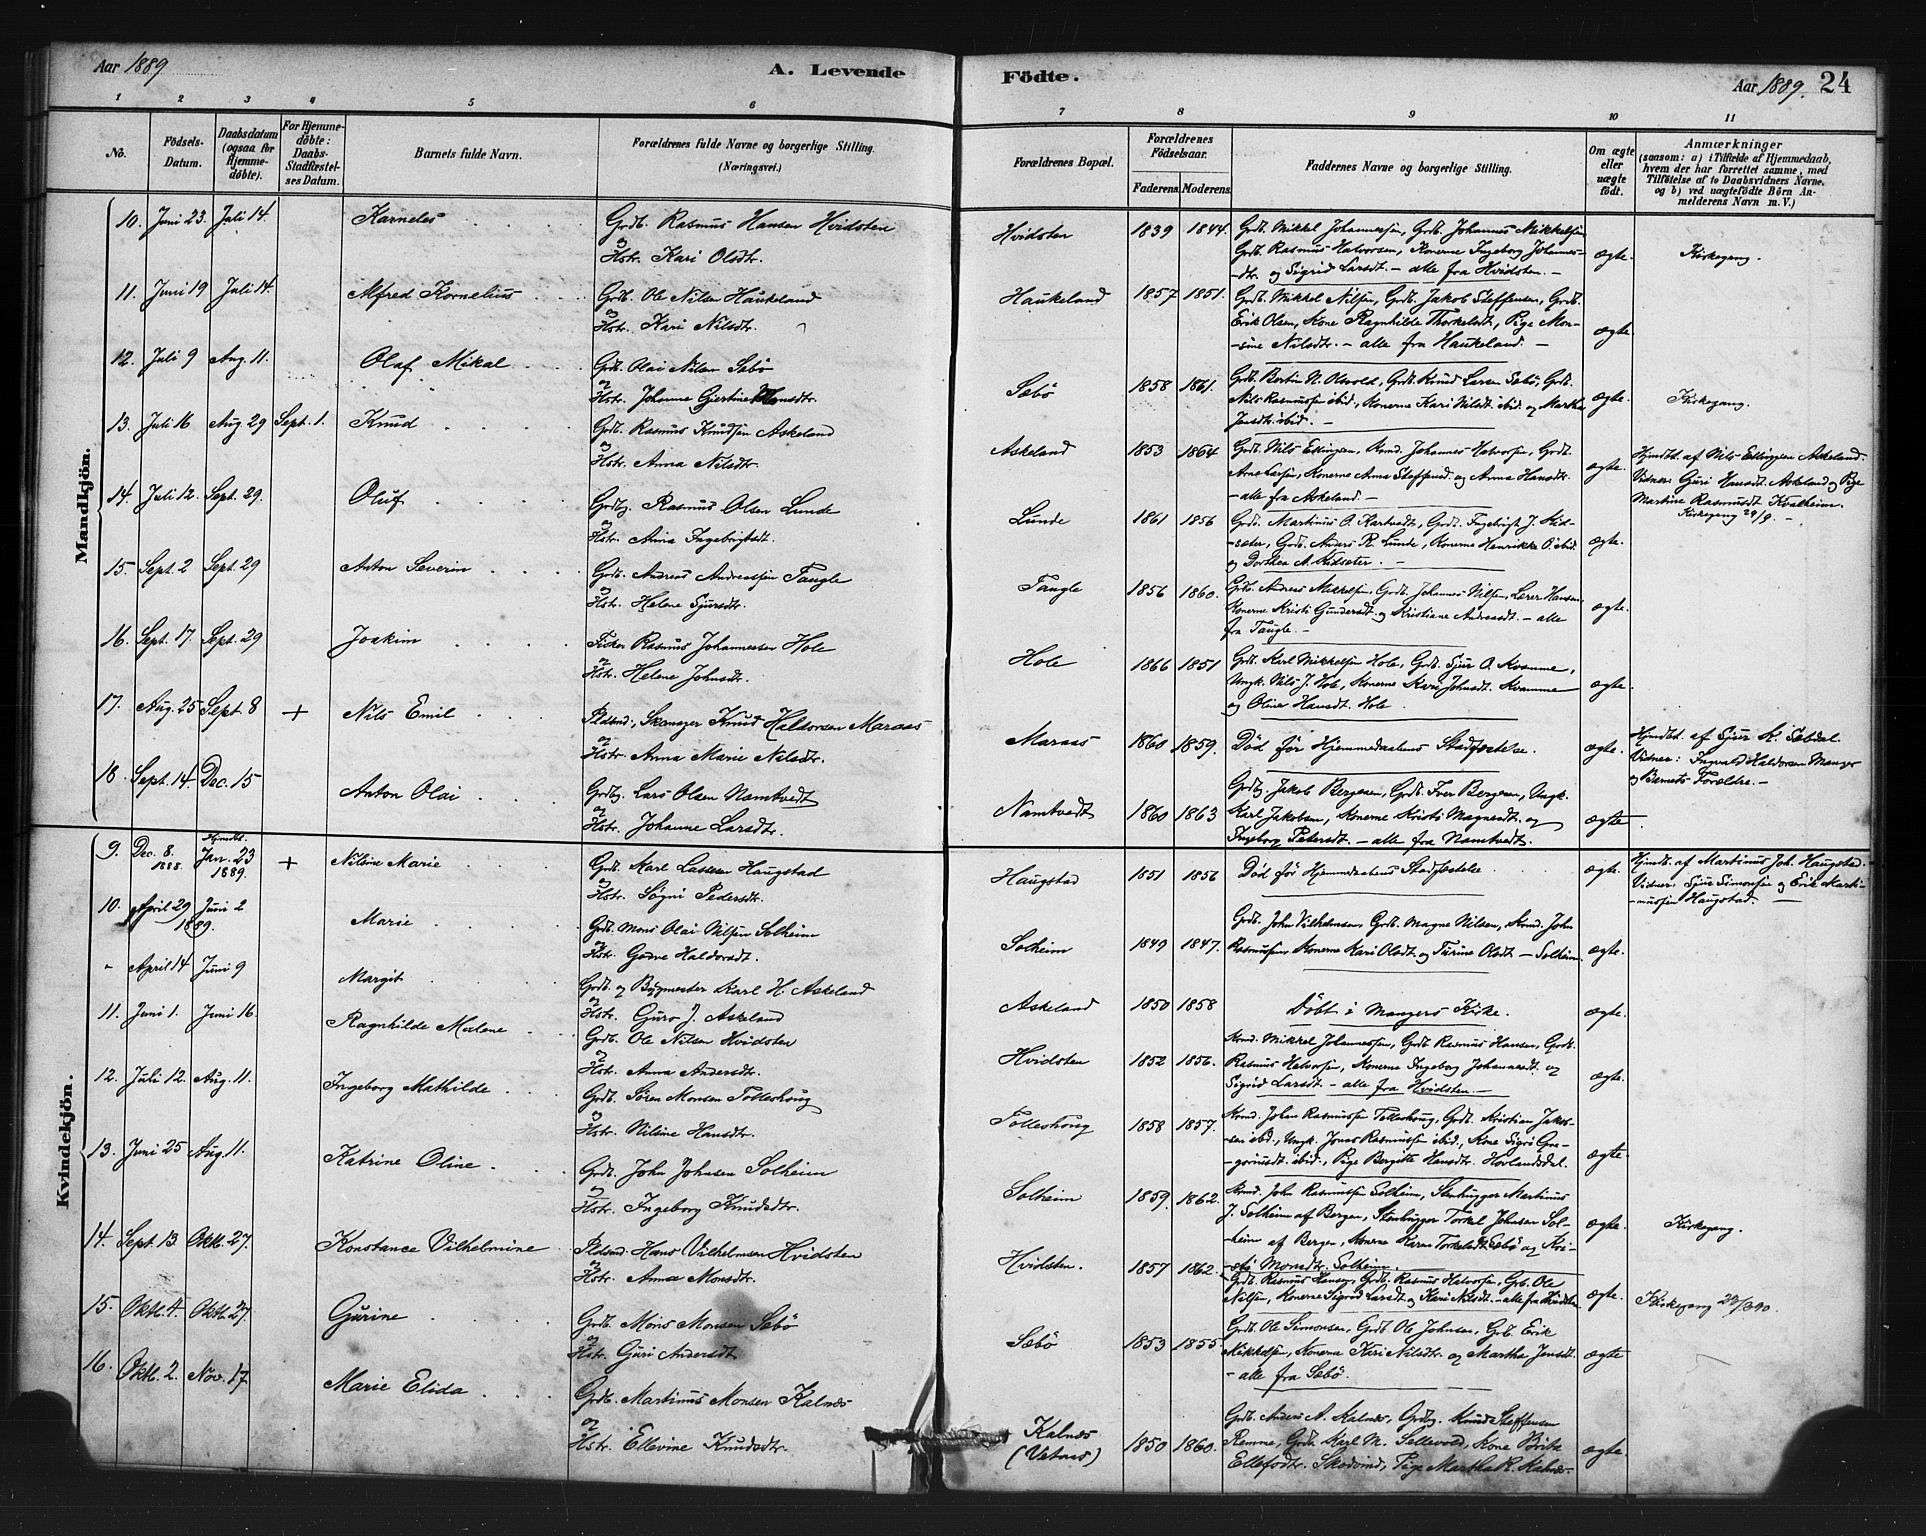 Aar 1889
A. Levende
Födte.
Aar 1889. 24
1 2 3 4 5 6 7 8 9 10 11
No.
Födsels-
Datum.
Daabsdatum
(ogsaa for
Hjemme-
döbte).
For Hjemme-
döbte:
Daabs-
Stadfæstel-
ses Datum.
Barnets fulde Navn.
Forældrenes fulde Navne og borgerlige Stilling.
(Næringsvei.)
Forældrenes Bopæl.
Forældrenes
Födselsaar.
Faderens. Moderens.
Faddernes Navne og borgerlige Stilling.
Om ægte
eller
uægte
födt.
Anmærkninger
(saasom: a) i Tilfælde af Hjemmedaab,
hvem der har forrettet samme, med
Tilföielse af to Daabsvidners Navne,
og b) ved uægtefödte Börn An-
melderens Navn m. V.)
Mandkjön.
10. Juni 23. Juli 14. Karneles
Grdb. Rasmus Hansen Hvidsten
og
Hstr. Kari Olsdtr.
Hvidsten 1839 1844.
Grdb. Mikkel Johannessen, Grdb. Johannes Mikkelsen
Grdb. Rasmus Halvorsen, Konerne Ingeborg Johannes-
-dtr. og Sigrid Larsdt. - alle fra Hvidsten. -
ægte. Kirkegang.
11. Juni 19 Juli 14. Alfred Kornelius
Grdb. Ole Nilsen Haukeland
og
Hstr. Kari Nilsdtr.
Haukeland 1857 1851.
Grdb. Mikkel Nilsen, Grdb. Jakob Steffensen, Grdb.
Erik Olsen, Kone Ragnhilde Thorkelsdt, Pige Mon-
-sine Nilsdtr. - alle fra Haukeland. -
ægte
12. Juli 9 Aug. 11. Olaf Mikal
Grdb. Olai Nilsen Sæbö
og
Hstr. Johanne Gjertine Monsdtr.
Sæbö 1858 1861.
Grdb. Bertin N. Olsvold, Grdb. Knud Larsen Sæbö, Grdb.
Nils Rasmussen ibid., Konerne Kari Nilsdt. ibid. og Martha
Jensdtr. ibid. -
ægte. Kirkegang.
13. Juli 16 Aug 29 Sept. 1. Knud
Grdb. Rasmus Knudsen Askeland
og
Hstr. Anna Nilsdtr.
Askeland 1853 1864
Grdb. Nils Ellingsen, Kmd. Johannes Halvorsen, Grdb.
Arne Larsen, Konerne Anna Steffensd. og Anna Hansdtr.
- alle fra Askeland. -
ægte.
Hjmdbt. af Nils Ellingsen Askeland.
Vidner: Guri Hansdt. Askeland og Pige
Martine Rasmusdt. Kvalheim.
Kirkegang 29/9. -
14. Juli 12. Sept. 29. Oluf
Grdbg. Rasmus Olsen Lunde
og
Hstr. Anna Ingebrigtsdt.
Lunde 1861 1856
Grdb. Martinus O. Kartvedt, Grdb. Ingebrigt J. Kid-
-sæter, Grdb. Anders R. Lunde, Konerne Henrikke O. ibid.
og Dorthea A. Kidsæter. -
ægte.
15. Sept. 2 Sept. 29 Anton Severin
Grdb. Andreas Andreassen Taugle
og
Hstr. Helene Sjursdtr.
Taugle 1856 1860.
Grdb. Anders Mikkelsen, Grdb. Johannes Nilsen, Lærer Hansen
Konerne Kristi Gundersdt. og Kristiane Andreasdt. - alle
fra Taugle. -
ægte.
16. Sept. 17 Sept. 29 Joakim
Fisker Rasmus Johannessen Hole
og
Hstr. Helene Johnsdtr.
Hole 1866 1851
Grdb. Karl Mikkelsen Hole, Grdb. Sjur O. Kvamme,
Ungk. Nils J. Hole, Konerne Kari Johnsdt. Kvamme
og Oline Hansdt. Hole.
ægte.
17. Aug. 25 Sept. 8 + Nils Emil
Pldsmd., Skomager Knud Haldorsen Maraas
og
Hstr. Anna Marie Nilsdtr.
Maraas 1860 1859.
Död för Hjemmedaabens Stadfæstelse.
ægte.
Hjmdbt. af Sjur K. Sæbdal
Vidner: Ingvald Haldorsen Manger
og Barnets Forældre. -
18. Sept. 14. Dec. 15 Anton Olai
Grdbg. Lars Olsen Namtvedt
og
Hstr. Johanne Larsdtr.
Namtvedt 1860 1863
Grdbg. Jakob Bergesen, Grdb. Iver Bergesen, Ungk.
Karl Jakobsen, Konerne Kristi Magnesdt. og
Ingeborg Petersdt. - alle fra Namtvedt.
ægte
Kvindekjön.
9. Dec. 8. 1888. Hjmdbt. Jan. 23 1889. + Nilsine Marie
Grdb. Karl Lassesen Haugstad
og
Hstr. Søgni Pedersdtr.
Haugstad 1851 1856
Död för Hjemmedaabens Stadfæstelse.
ægte.
Hjmdbt. af Martinus Joh. Haugstad.
Vidner: Sjur Simonsen og Erik Marti-
-nussen Haugstad. -
10. April 29 1889. Juni 2 Marie
Grdb. Mons Olai Nilsen Solheim
og
Hstr. Gadve Haldorsdt.
Solheim 1849 1847.
Grdb. John Vilhelmsen, Grdb. Magne Nilsen, Kmd. John
Rasmussen, Konerne Kari Olsdt. og Turine Olsdt - Solheim.
ægte.
" April 14 Juni 9 Margit
Grdb. og Bygmester Karl H. Askeland
og
Hstr. Guro J. Askeland
Askeland 1850 1858
Döbt i Mangers Kirke.
ægte.
11. Juni 1. Juni 16. Ragnhilde Malene
Grdb. Ole Nilsen Hvidsten
og
Hstr. Anna Andersdt.
Hvidsten 1852 1856.
Kmd. Mikkel Johannessen, Grdb Rasmus Hansen, Grdb.
Rasmus Halvorsen, Konerne Ingeborg Johannesdt. og
Sigrid Larsdt. - alle fra Hvidsten. -
ægte.
12. Juli 12. Aug. 11. Ingeborg Mathilde
Grdb. Sören Monsen Tolleshoug
og
Hstr. Nilsine Hansdtr.
Tolleshoug 1858 1857.
Kmd. John Rasmussen Tolleshoug, Grdb. Kristian Jakob-
-sen ibid., Ungk. Jonas Rasmussen ibid., Kone Sigri Gre-
-goriusdt. ibid., Pige Bergitte Hansdtr. Hovlandsdal.
ægte.
13. Juni 25 Aug. 11. Katrine Oline
Grdb. John Johnsen Solheim
og
Hstr. Ingeborg Knudsdtr.
Solheim 1859. 1862.
Kmd. John Rasmussen Solheim, Stenhugger Martinus
J. Solheim af Bergen, Stenhugger Torkel Johnsen Sol-
-heim af Bergen, Konerne Karen Torkelsdt. Sæbö og Kri-
-sti Monsdtr. Solheim.
ægte. Kirkegang.
14. Sept. 13. Oktb. 27. Konstance Vilhelmine
Pldsmd. Hans Vilhelmsen Hvidsten
og
Hstr. Anna Monsdtr.
Hvidsten. 1857 1862.
Grdb. Rasmus Hansen, Grdb. Rasmus Halvorsen, Grb. Ole
Nilsen, Konerne Sigrid Larsdt. og Kari Nilsdt. - alle fra Hvidsten
ægte. Kirkegang 23/3 90.
15. Oktb. 4. Oktb. 27. Gurine
Grdb. Mons Monsen Sæbö
og
Hstr. Guri Andersdt.
Sæbö 1853 1855.
Grdb. Ole Simonsen, Grdb. Ole Johnsen, Grb. Erik
Mikkelsen, Konerne Kari Nilsdtr. og Martha Jensdt.
- alle fra Sæbö.
ægte
16. Oktb. 2. Nov. 17. Marie Elida
Grdb. Martinus Monsen Kalnæs
og
Hstr. Ellevine Knudsdtr.
Kalnæs
(Vetaas) 1850 1860.
Grdb. Anders A. Kalnæs, Grdbg. Knud Steffensen
Remme, Grdb. Karl M. Sellevold, Kone Brita
Ellefsdtr. Skodvind, Pige Martha R. Kalnæs.
ægte.